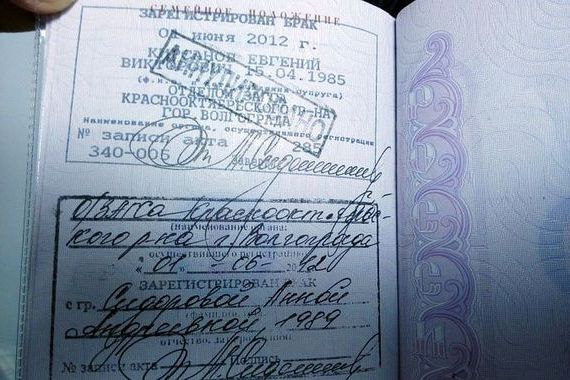 СЕМЕЙНОЕ ПОЛОЖЕНИЕ
ЗАРЕГИСТРИРОВАН БРАК
01 июня 2012 г.
ЕВГЕНИЙ
15.04.1985
(ф.и.о.
супруга)
КРАСНООКТЯБРЬСКОГО Р-НА
ГОР. ВОЛГОГРАДА
Наименование органа, осуществившего регистрации
№ записи акта 285
340-006 Заверено
ОЗАГСа Краснооктябрь-
ского р-на г. Волгограда
(наименование органа,
осуществившего регистрацию)
"01" - 06 - 2012
ЗАРЕГИСТРИРОВАН БРАК
с гр. Сидоровой Анной
Андреевной, 1989
отчество, дата рожд.
№ записи акта Подпись